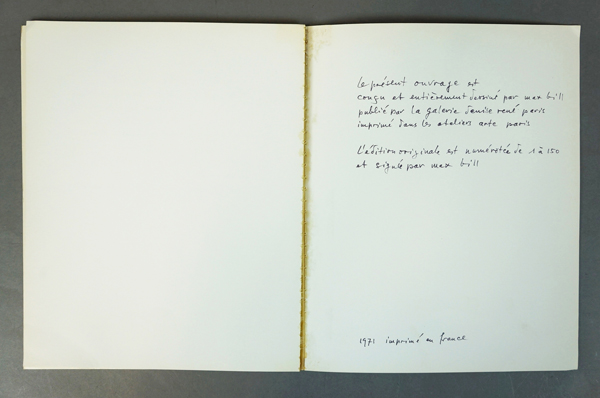 le présent ouvrage est
conçu et entièrement dessiné par max bill
publié par la galerie denise rené paris
imprimé dans les ateliers arte paris
l'édition originale est numérotée de 1 à 150
et signée par max bill
1971 imprimé en france